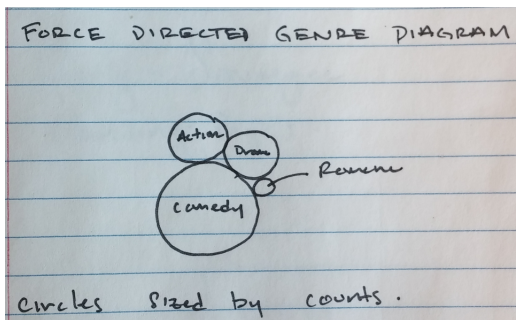 FORCE DIRECTED GENRE DIAGRAM
Action
Drama
Romance
Comedy
circles sized by counts.